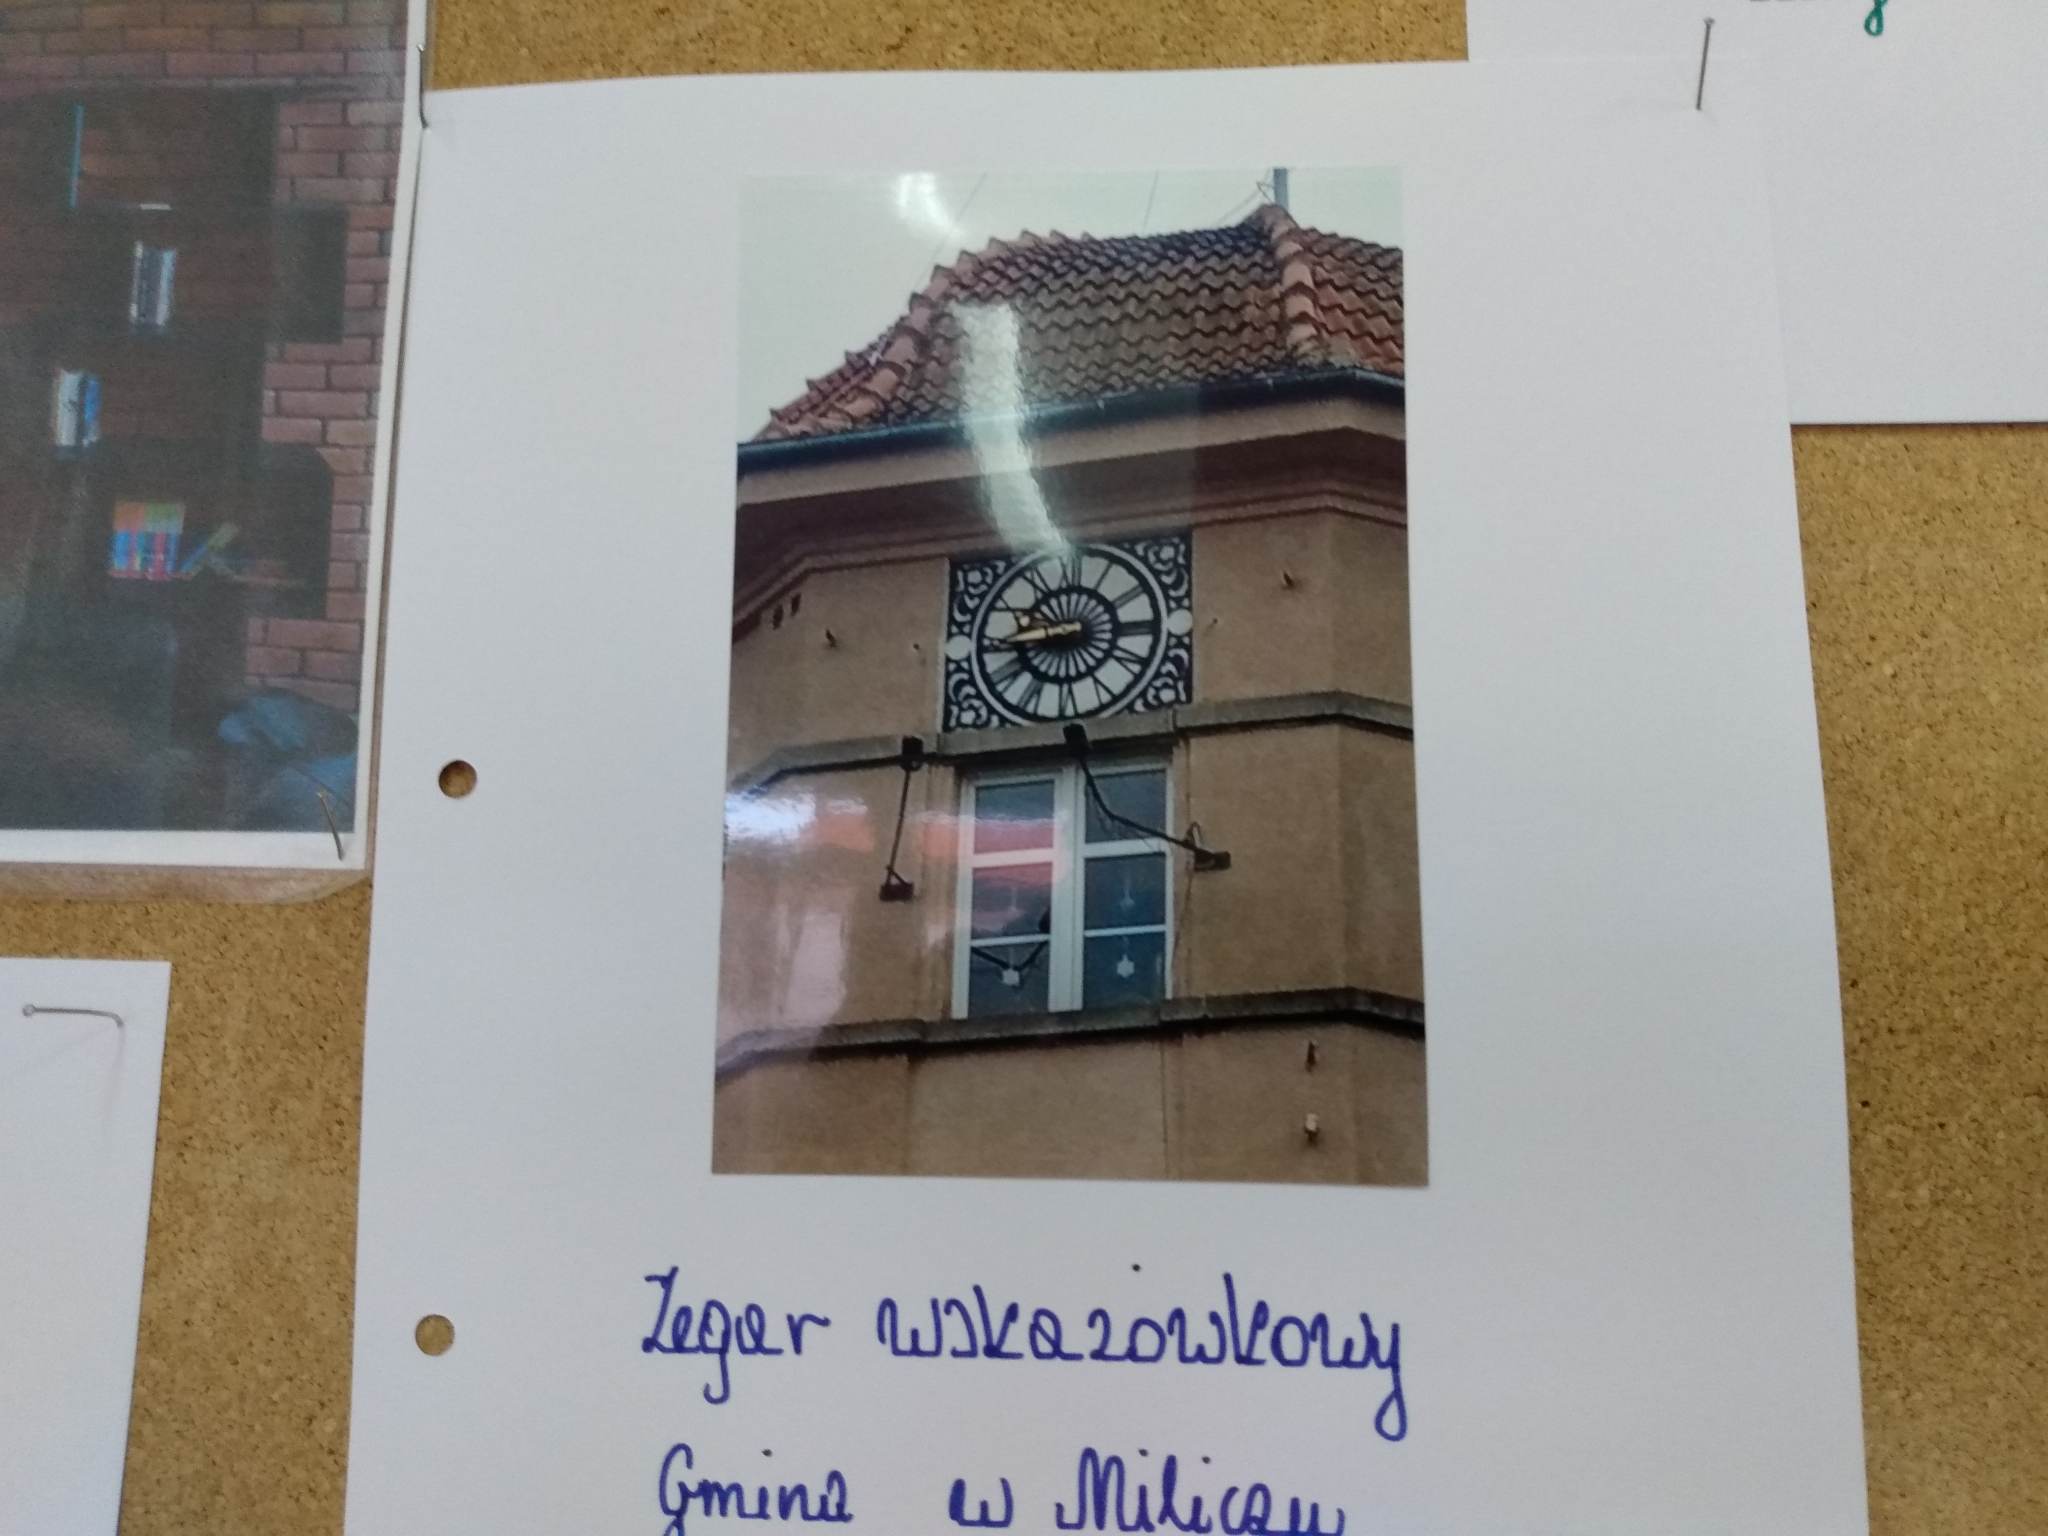 Zegar wskazówkowy
Gmina w Miliczu